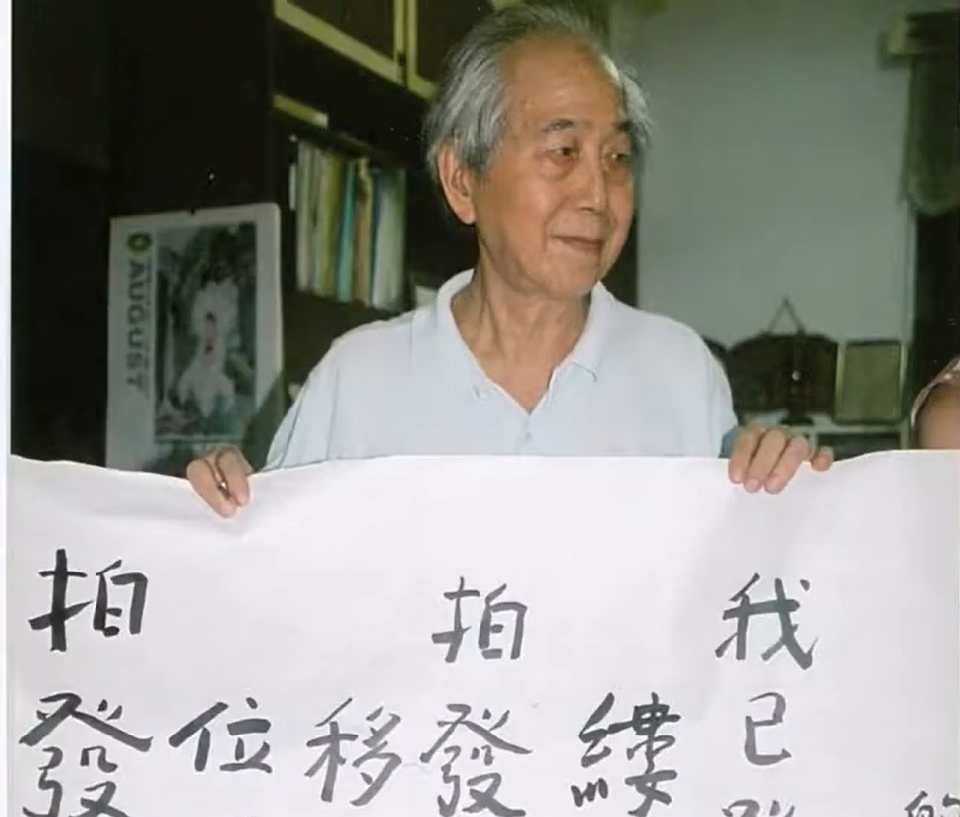 AUGUST
我已
縷
拍發
移
位
拍發